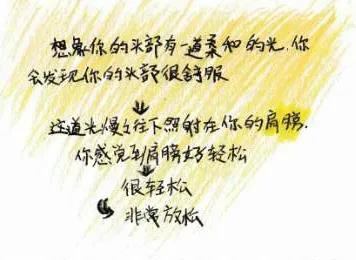 想象你的头部有一道柔和的光.你
会发现你的头部很舒服
↓
这道光慢慢往下照射在你的肩膀.
你感觉到肩膀好轻松
↓
很轻松
非常放松